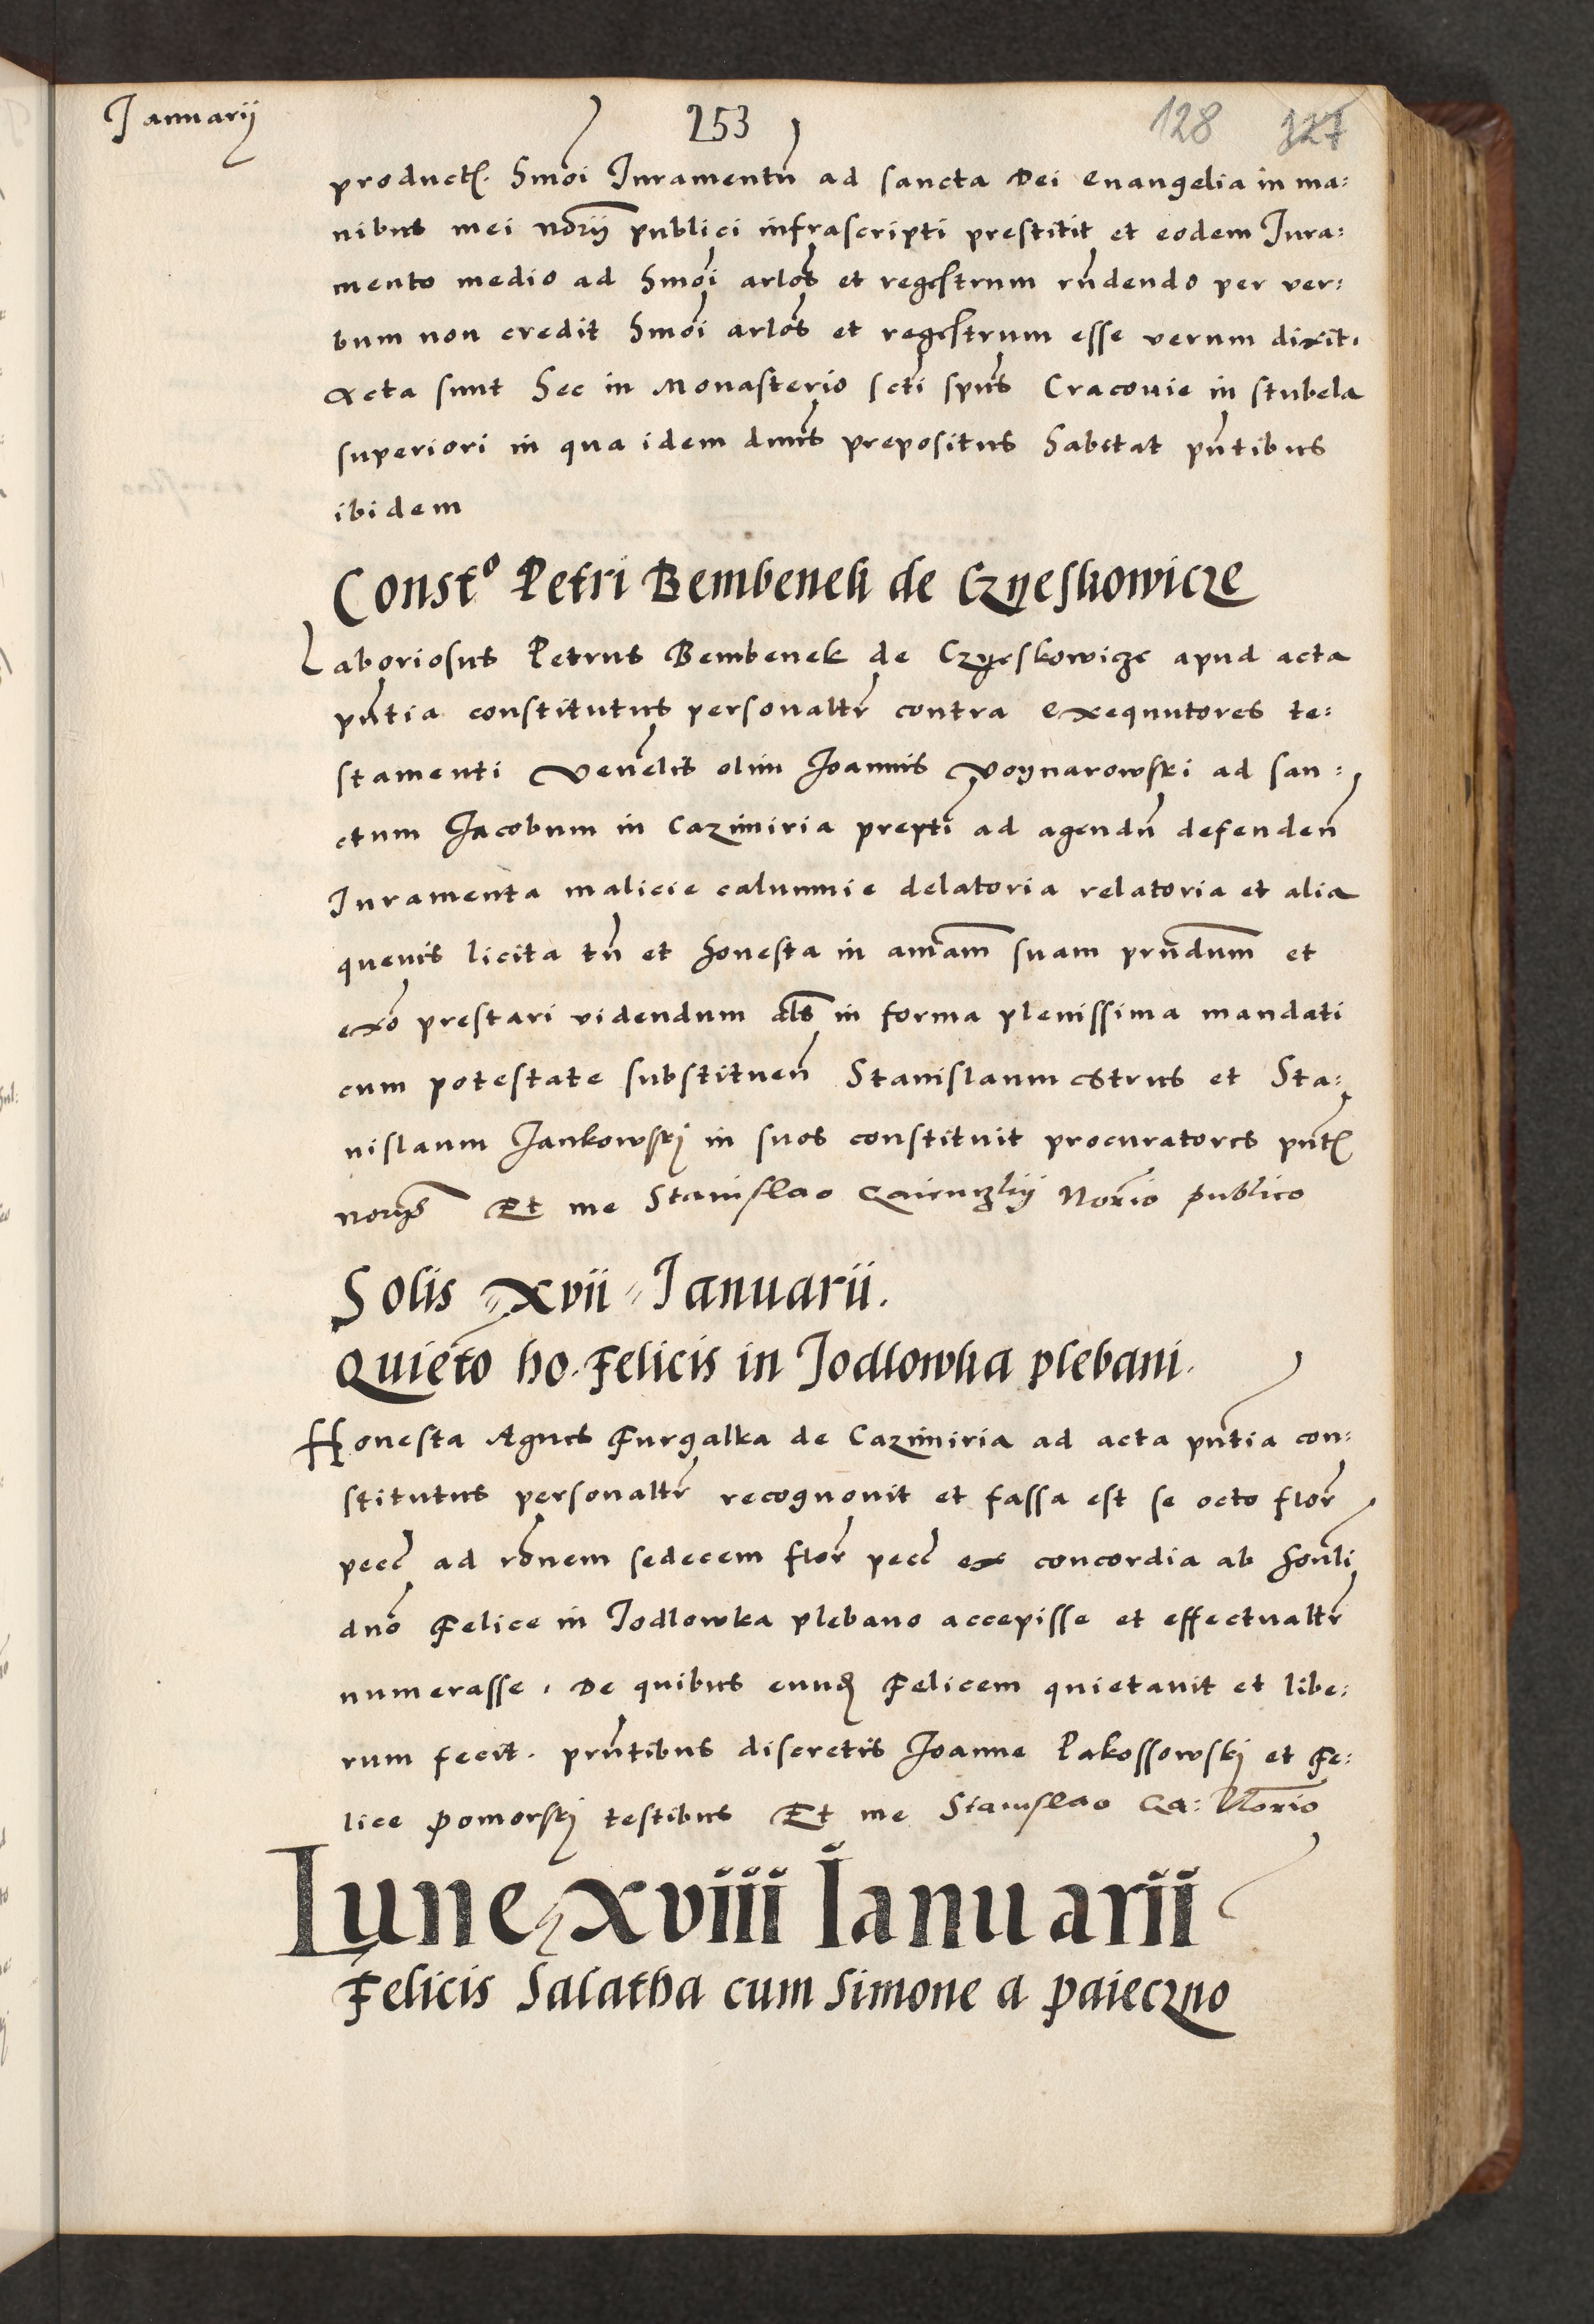 Januarij
253
128 127
product. hmoi Juramentu ad sancta Dei Evangelia in ma:
nibus mei norij publici infrascripti prestitit et eodem Jura:
mento medio ad hmoi arlos et registrum rndendo per ver:
bum non credit hmoi arlos et registrum esse verum dixit.
Acta sunt hec in Monasterio scti spus Cracovie in stubela
superiori in qua idem dnus prepositus habitat pntibus
ibidem
Constº Petri Bembenek de Czyeskowicze
Laboriosus Petrus Bembenek de Czyeskowicze apud acta
pntia constitutus personaltr contra exequutores te:
stamenti Venelis olim Joannis Voynarowski ad san:
ctum Jacobum in Cazimiria prepti ad agendu defenden
Juramenta malicie calumnie delatoria relatoria et alia
quevis licita tn et honesta in animam suam prndum et
exo prestari videndum als in forma plenissima mandati
cum potestate substituen Stanislaum Estrus et Sta:
nislaum Jankowskj in suos constituit procuratores pnt
norijs Et me Stanislao Norio publico
Solis xvii Januarii.
Quieto ho. Felicis in Jodlowka plebani.
Honesta Agnes Furgalka de Cazimiria ad acta pntia con:
stitutus personaltr recognovit et fassa est se octo flor
pecc ad ronem sedecem flor pecc ex concordia ab honli
dno Felice in Jodlowka plebano accepisse et effectualtr
numerasse. De quibus eund Felicem quietavit et libe:
rum fecit. prntibus discretis Joanne Pakossowskj et Fe:
lice Pomorskj testibus Et me Stanislao Qa: Norio
Lune xviii Januarii
Felicis Salatha cum Simone a Paieczno